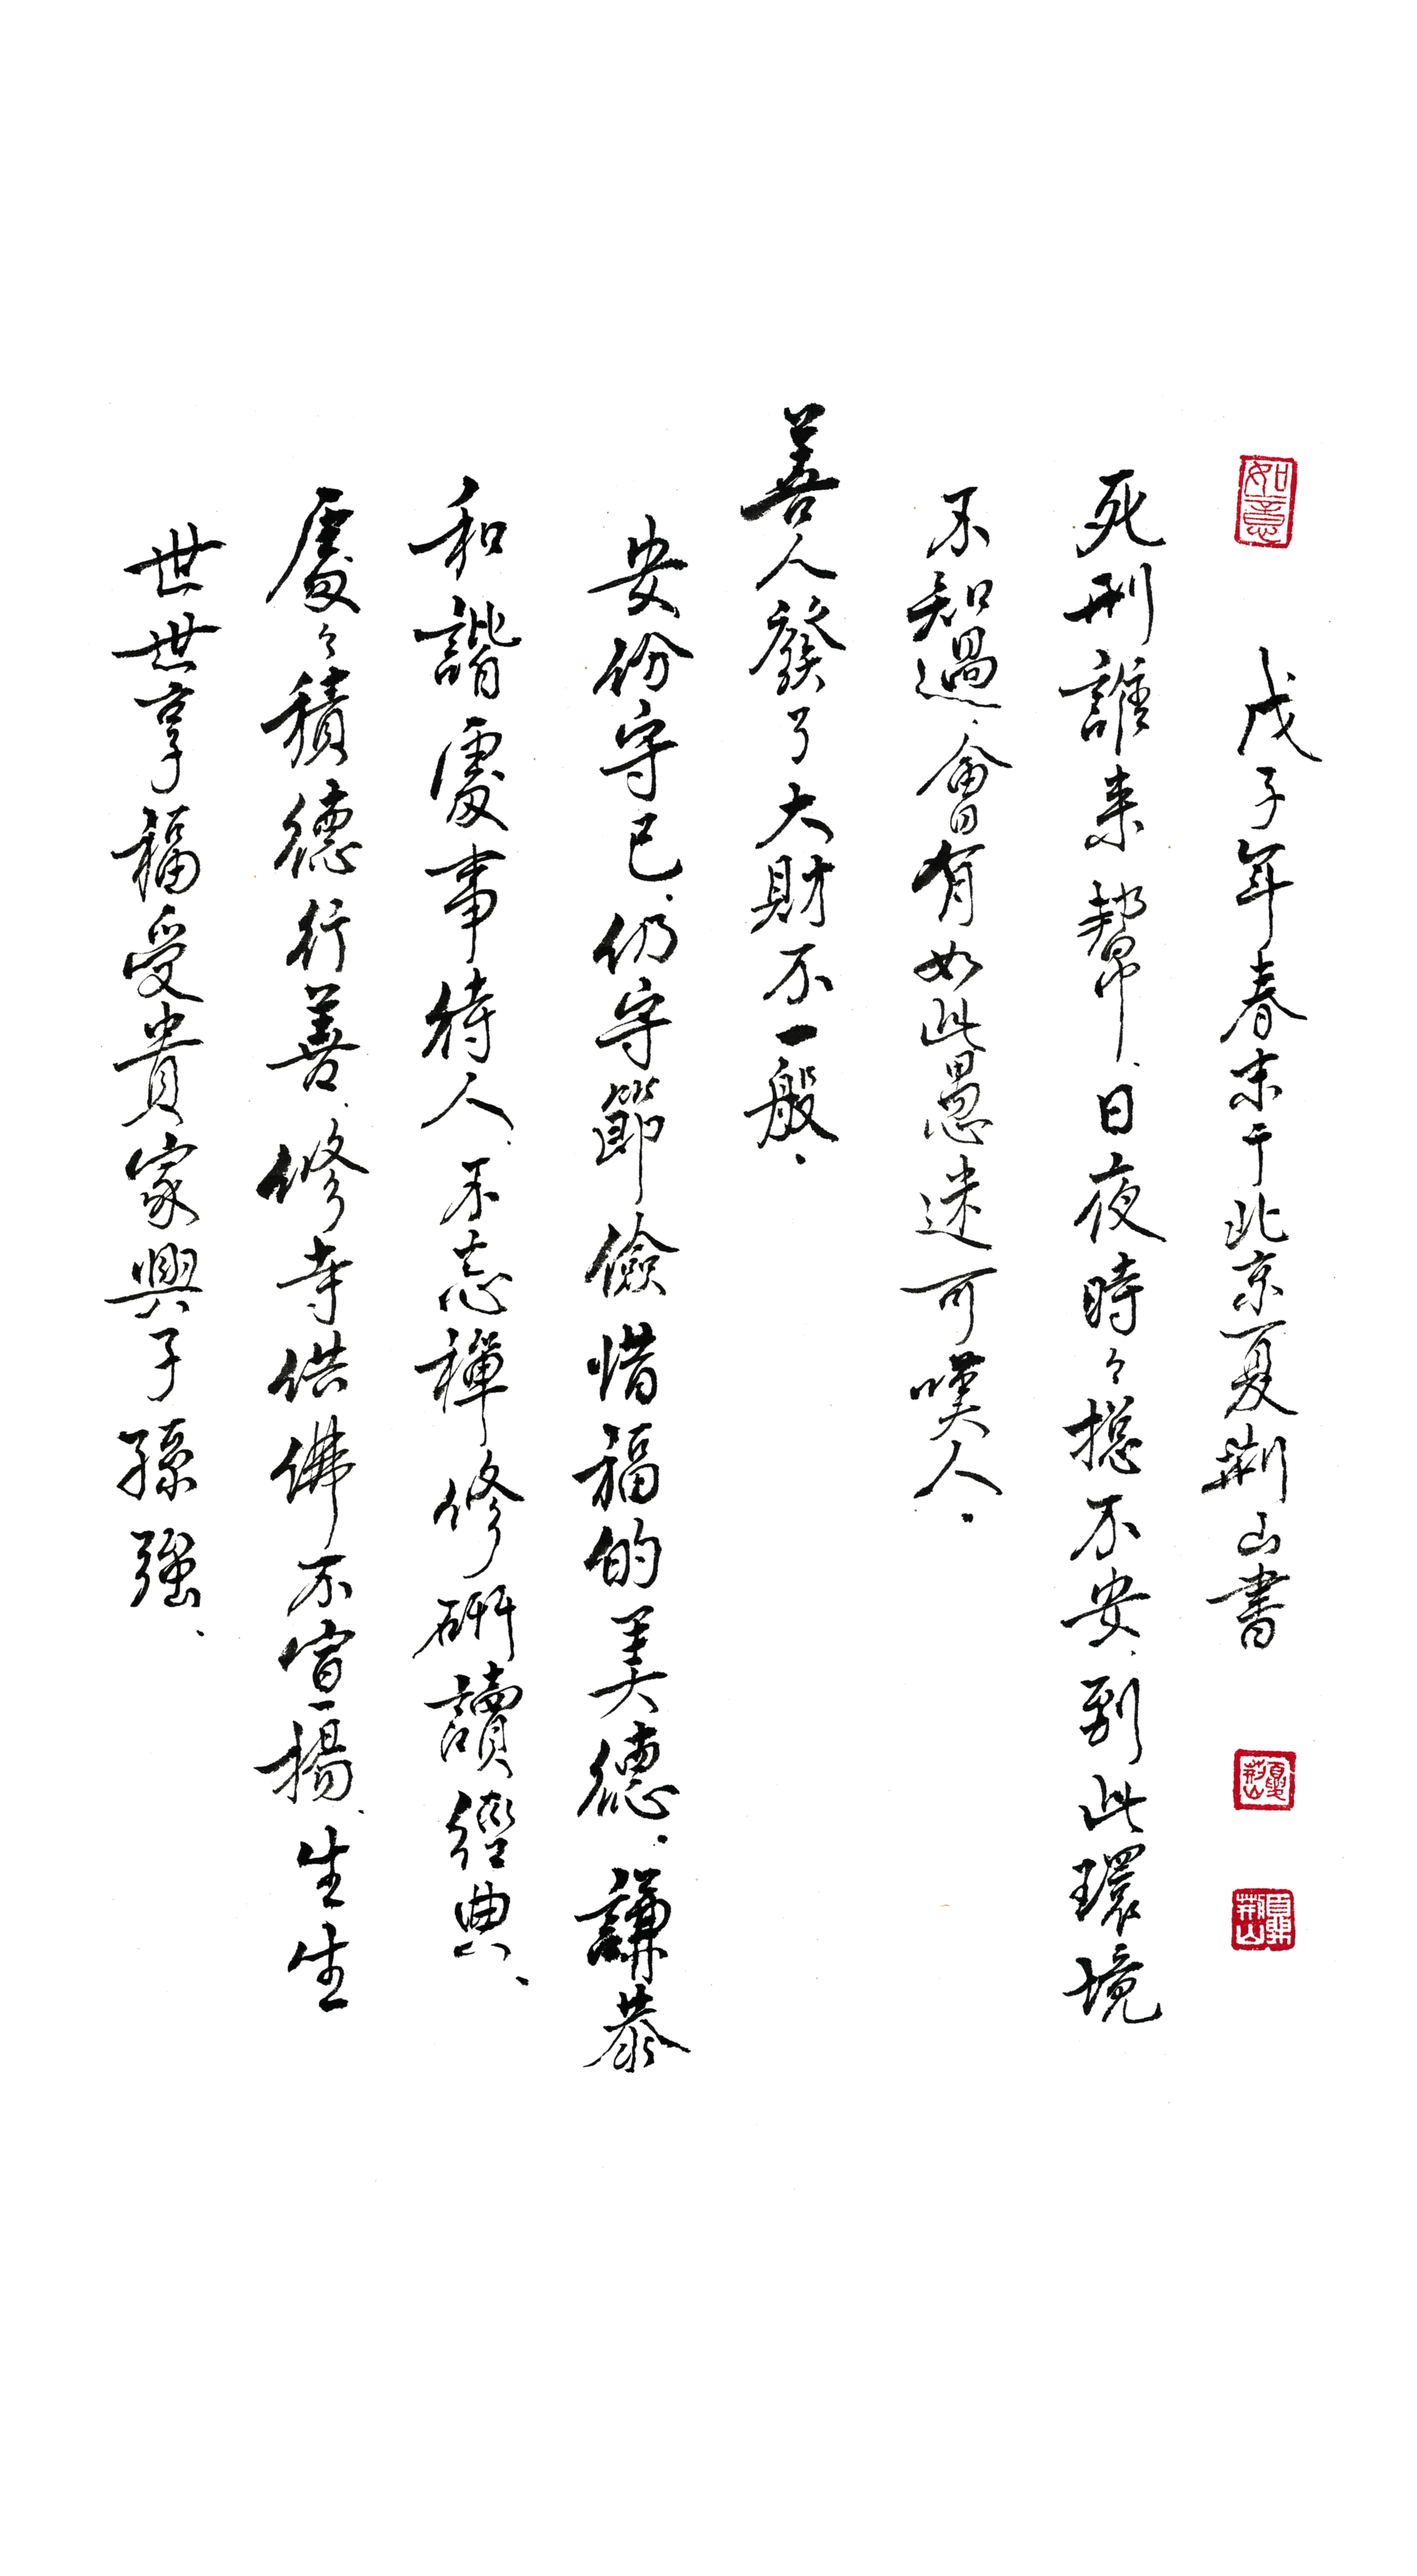 如意
戊子年春末于北京夏荆山書
夏荆山
夏荆山
死刑誰来幫、日夜時々摠不安、到此環境
不知過、會有如此愚迷可嘆人。
善人發了大財不一般、
安份守已、仍守節儉惜福的美德。謙恭
和諧處事待人、不忘禪修研讀經典、
處々積德行善、修寺供佛不宣揚、生生
世世享福受貴家興子孫強、